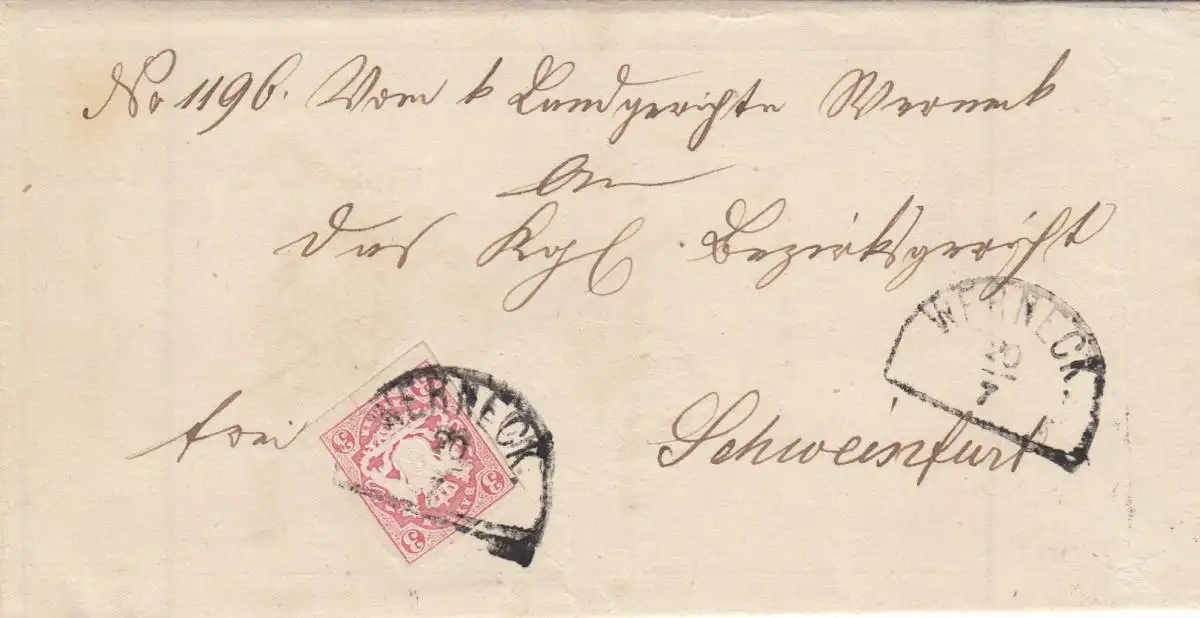 No 1196. Vom k Landgerichte Werneck
An
das Kgl. Bezirksgericht
frei
Schweinfurt
WERNECK.
20
7
WERNECK.
20
3
3
3